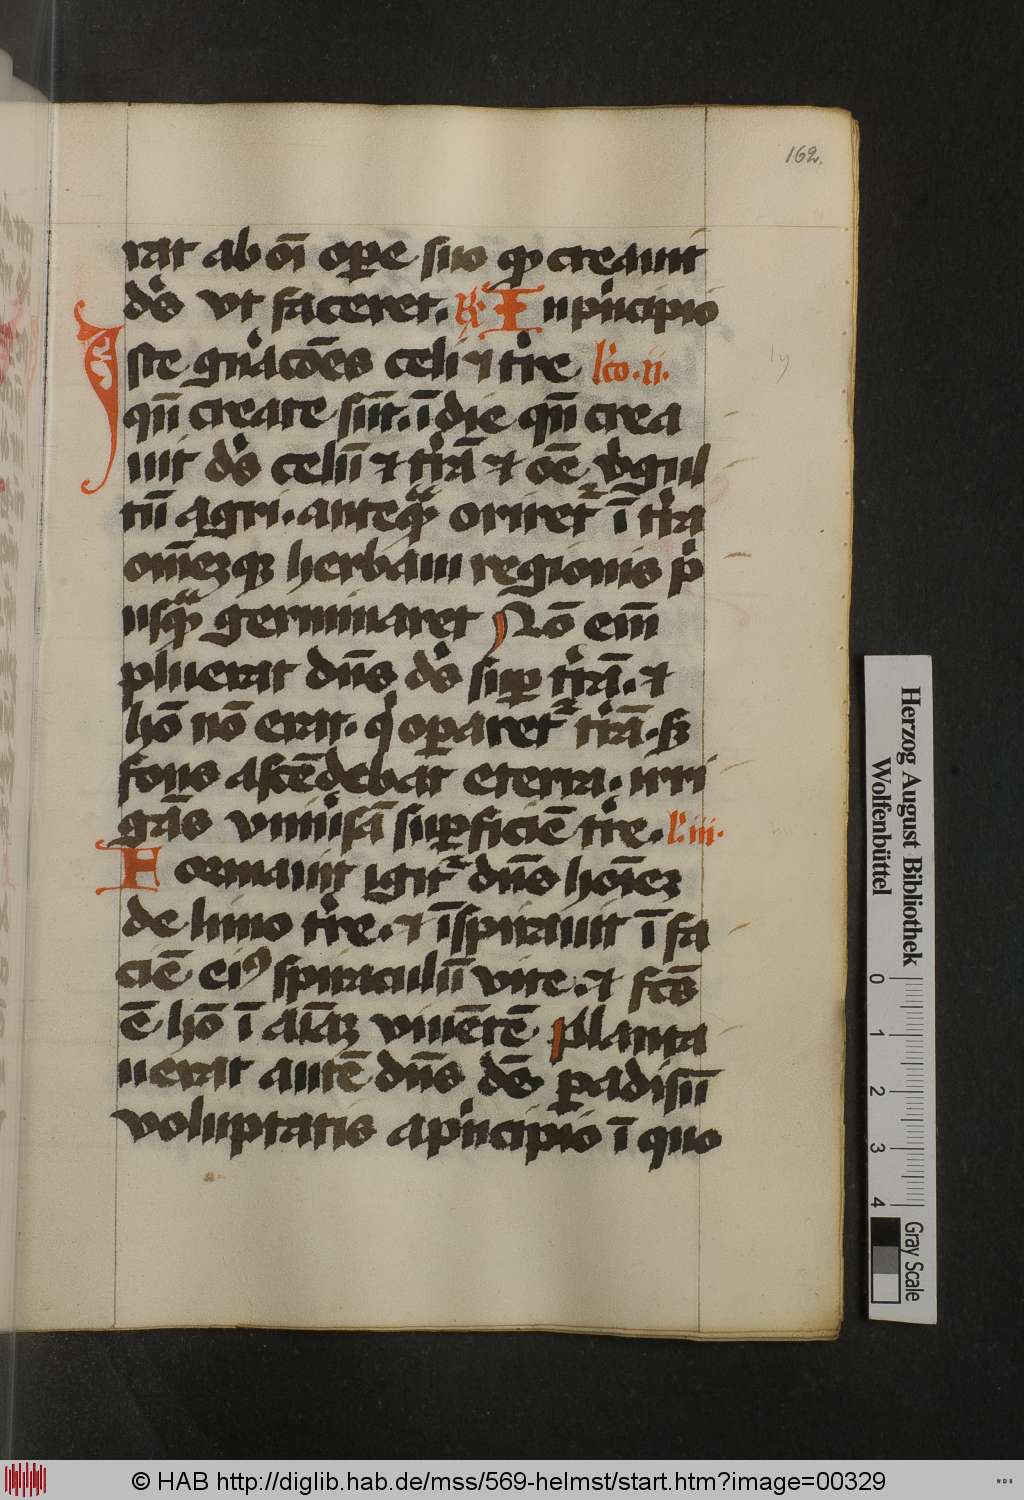 162.
rat ab oī ope suo qđ creauit
dꝰs vt faceret. R In pͥncipio
Iste gnͣacōes celi ⁊ tͬre lͨco .ii.
qn̄ create sūt. ī die qn̄ crea
uit dꝰs celū ⁊ tͬrā ⁊ oē vͥgul
tū agri. anteqͣꝫ oriretᷣ ī tͬra
om̄eꝫqꝫ herbam regionis pͥ
usqͣꝫ germinaret Nō eni̅
pluerat dn̄s dꝰs suꝑ tͬrā. ⁊
hō nō erat. qͥ oꝑaretᷣ tͬrā. sꝫ
fons ascēdebat e terra. irri
gās vniuͥsā suꝑficiē tͬre. lͨ iii.
Formauit igitᷣ dn̄s hoīeꝫ
de limo tͬre. ⁊ īspirauit ī fa
ciē eiꝰ spiraculū vite. ⁊ fc̄s
ē hō ī aīaꝫ viuētē Planta
uerat autē dn̄s dē̄s ꝑadisū
voluptatis a pͥncipio ī quo
Herzog August Bibliothek
Wolfenbüttel
0 1 2 3 4
Gray Scale
© HAB http://diglib.hab.de/mss/569-helmst/start.htm?image=00329